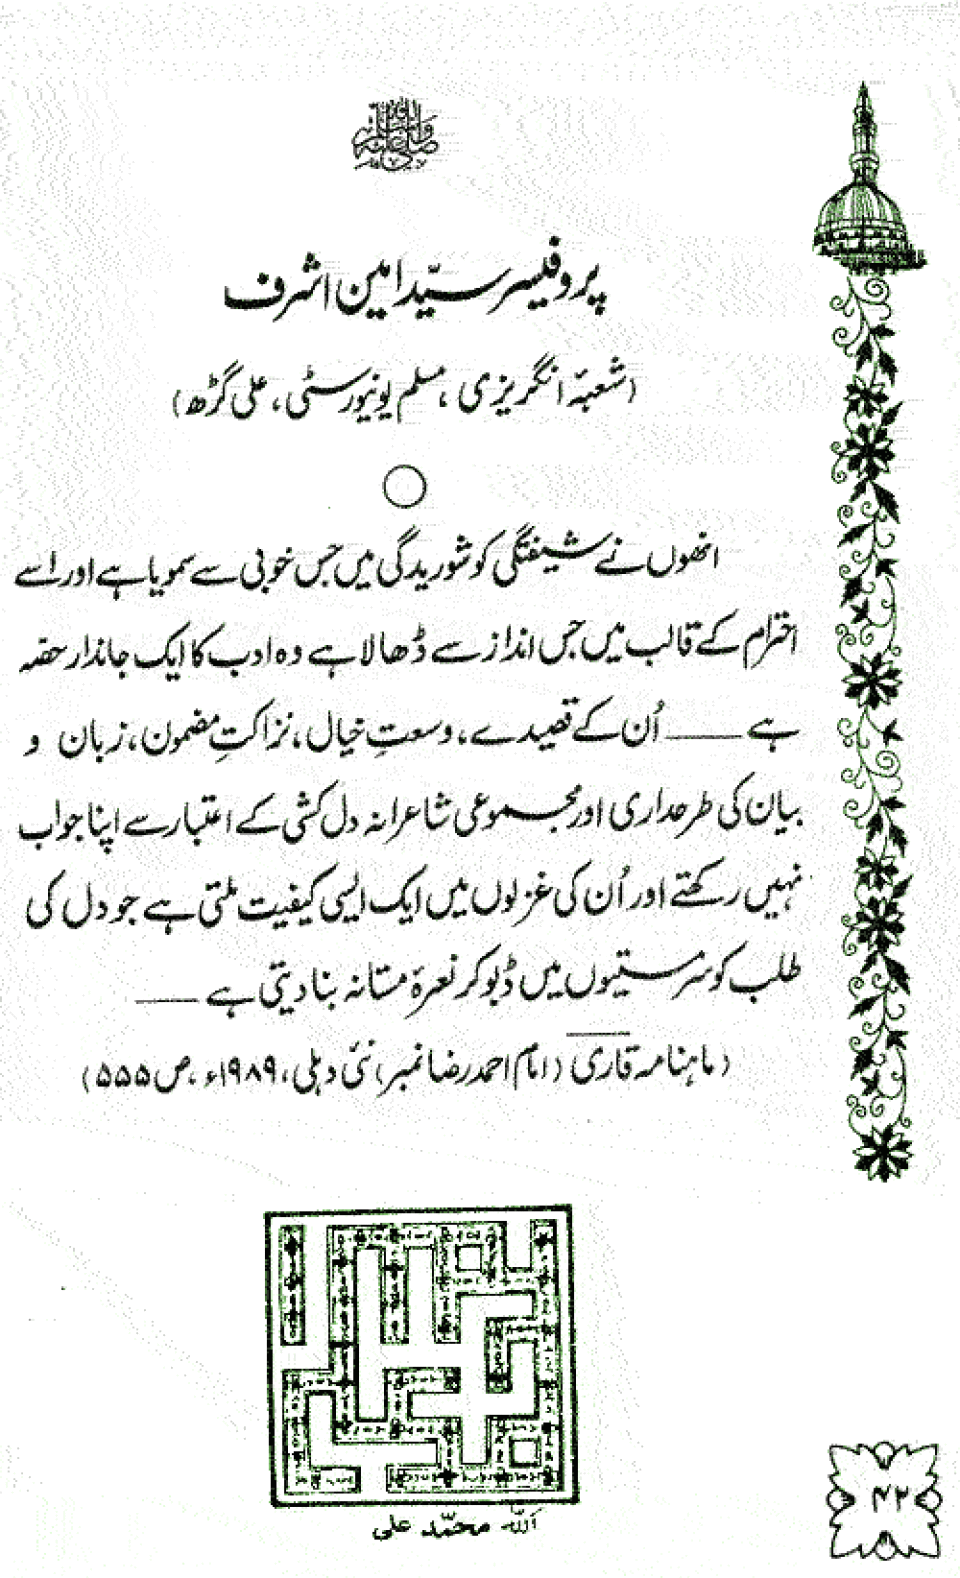 صلی اللہ علیہ وسلم
پروفیسر سیّد امین اشرف
(شعبۂ انگریزی، مسلم یونیورسٹی، علی گڑھ)
انھوں نے شیفتگی کو شوریدگی میں جس خوبی سے سمویا ہے اور اسے
احترام کے قالب میں جس انداز سے ڈھالا ہے وہ ادب کا ایک جاندار حصّہ
ہے ــــــ اُن کے قصیدے، وسعتِ خیال، نزاکتِ مضمون، زبان و
بیان کی طرحداری اور مجموعی شاعرانہ دل کشی کے اعتبار سے اپنا جواب
نہیں رکھتے اور اُن کی غزلوں میں ایک ایسی کیفیت ملتی ہے جو دل کی
طلب کو سرمستیوں میں ڈبو کر نعرۂ مستانہ بنا دیتی ہے ــــــ
(ماہنامہ قاری (امام احمد رضا نمبر) نئی دہلی، ۱۹۸۹ء، ص ۵۵۵)
اللّٰہ محمّد علی
۴۲